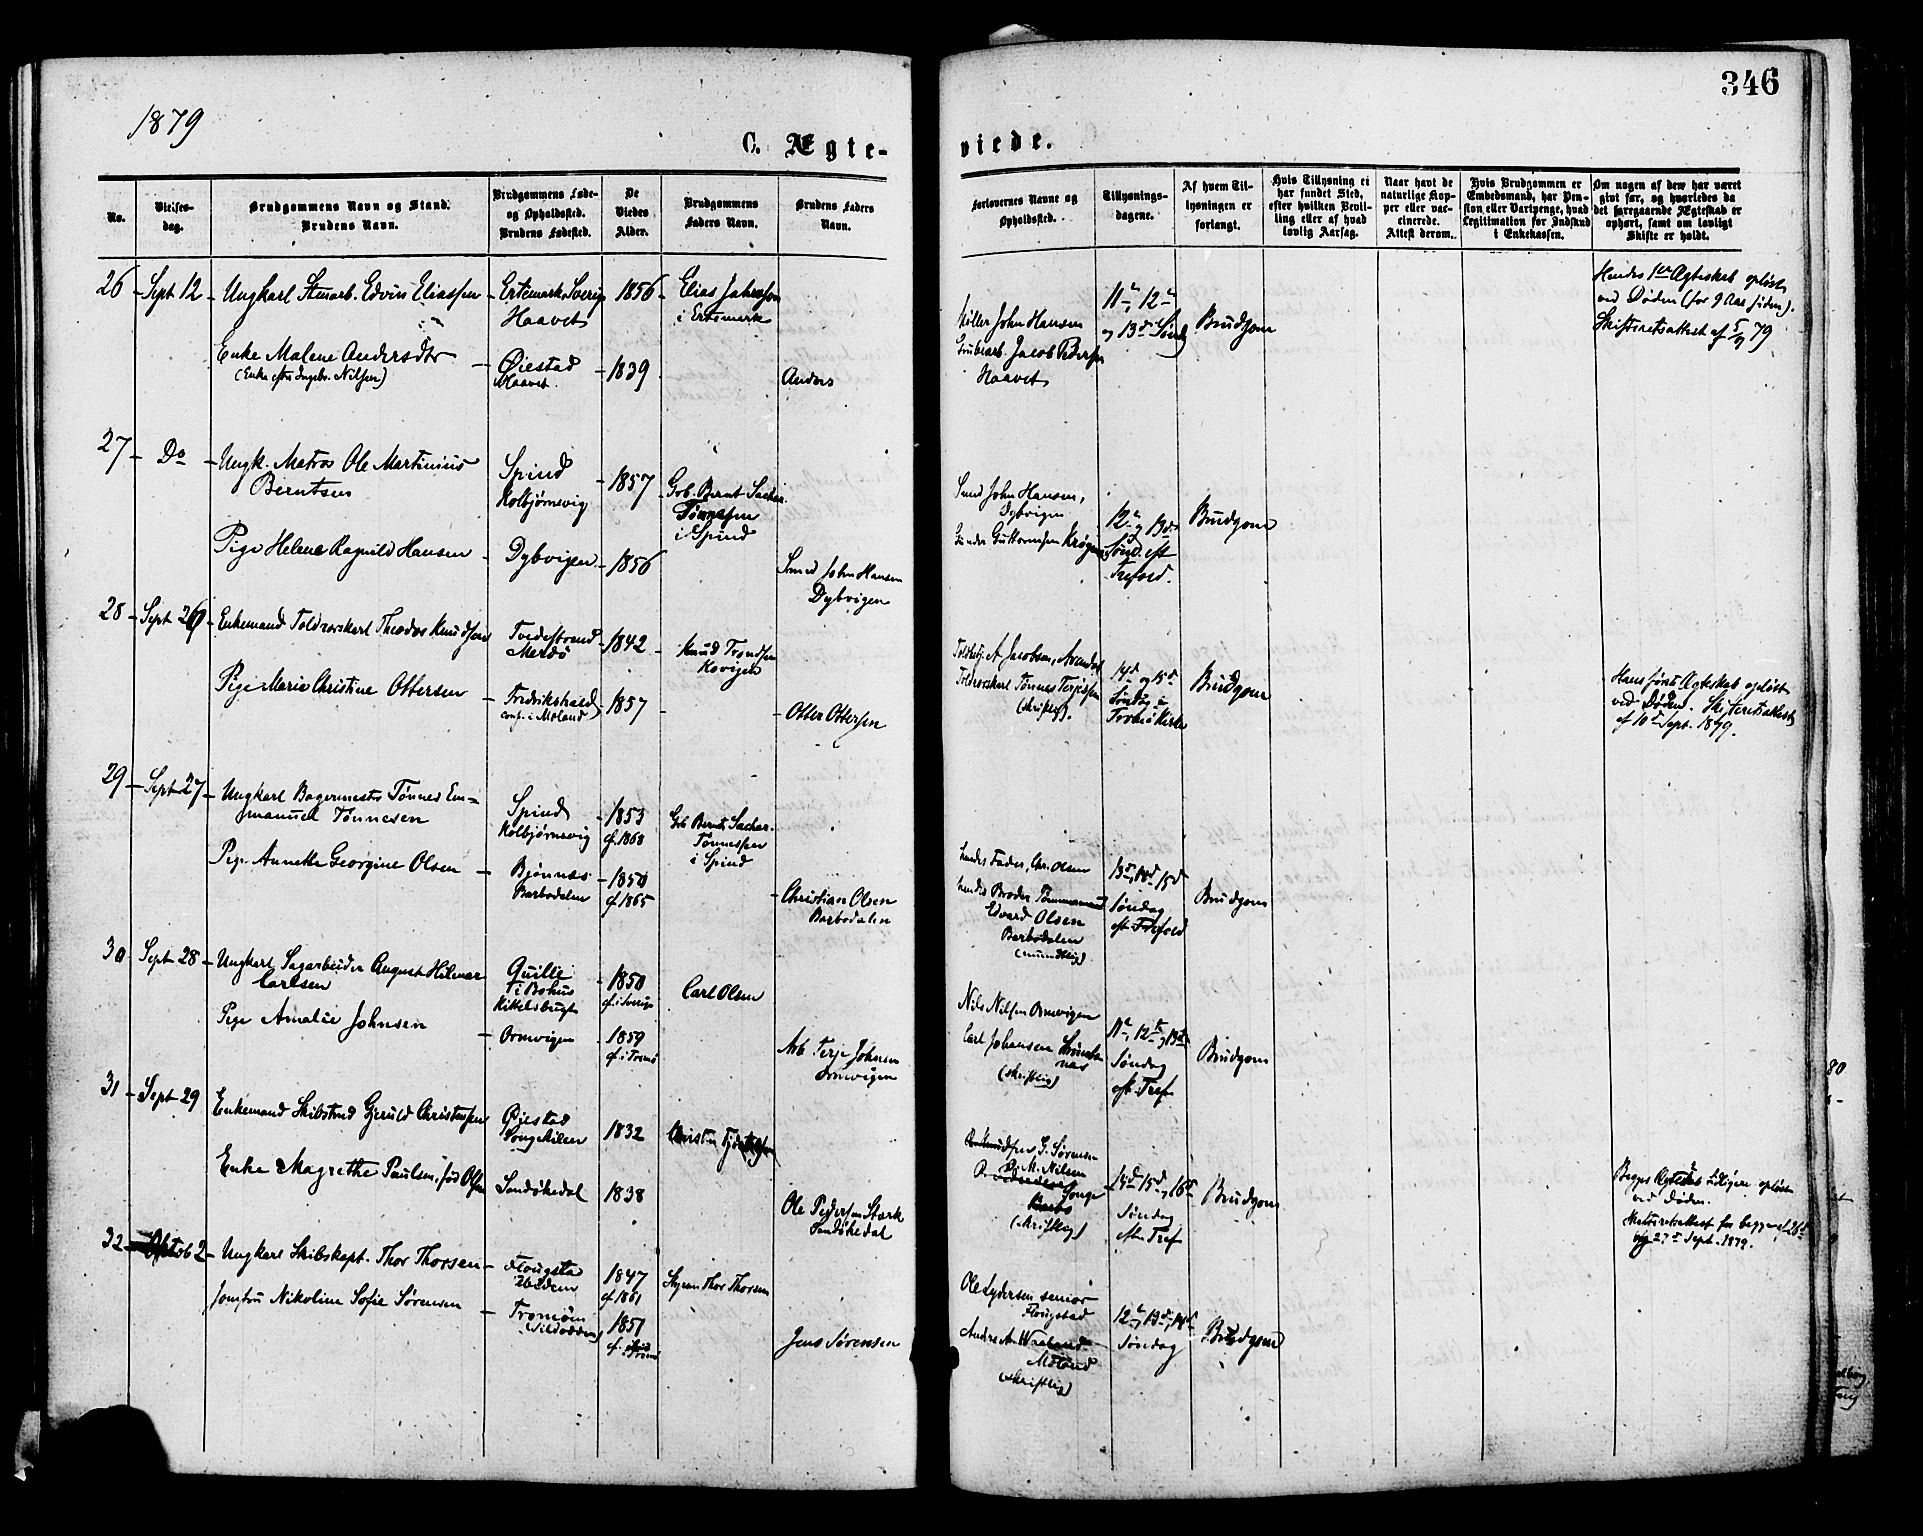 346
1879
C. Ægte-
viede.
No.
Vielses-
dag.
Brudgommens Navn og Stand.
Brudens Navn.
Brudgommens Føde-
og Opholdssted.
Brudens Fødested.
De
Viedes
Alder.
Brudgommens
Faders Navn.
Brudens Faders
Navn.
Forlovernes Navne og
Opholdssted.
Tillysnings-
dagene.
Af hvem Til-
lysningen er
forlangt.
Hvis Tillysning ei
har fundet Sted,
efter hvilken Bevil-
ling eller af hvad
lovlig Aarsag.
Naar havt de
naturlige Kop-
per eller vac-
cinerede.
Attest derom.
Hvis Brudgommen er
Embedsmand, har Pen-
sion eller Vartpenge, hvad
Legitimation for Indskud
i Enkekassen.
Om nogen af dem har været
givt før, og hvorledes da
det foregaaende Ægteskab er
ophørt, samt om lovligt
Skifte er holdt.
26 Sept 12 Ungkarl Edvin Eliassen
Haavet
1856
Elias
i Ertemark
Enke Malene Andersdtr
(Enke efter Ingebr. Nilsen)
Øiestad
Haavet
1839
Anders
John Hansen
Jacob Pedersen
Haavet
11te, 12te
og 13de Sønd
Brudgom
Hendes 1ste Ægteskab opløst
ved Døden (for 9 Aar siden).
Skifteretsattest af 79
27 Do Ungk. Matros Ole Martinius
Berntsen
Spind
Kolbjørnsvig
1857
Gbr. Bernt Sachar.
Tønnesen
i Spind
Pige Helene Ragnild Hansen
Dybvigen
1856
Smed John Hansen
Dybvigen
Smed John Hansen,
Dybvigen
Gunder Guttormsen
12te og 13de
Sønd. eft
Trefold.
Brudgom
28 Sept 26 Enkemand Toldroerskarl Theodor Knudsen
Tvedestrand
Merdø
1842
Knud Trondsen
Pige Marie Christine Ottersen
Fredrikshald
conf. i Moland
1857
Otter Ottersen
A Jacobsen, Arendal
Toldroerskarl Tønnes Terjesen
(skriftlig).
14de og 15de
Søndag i
Tromø Kirke
Brudgom
Hans første Ægteskab opløst
ved Døden. Skifteretsattest
af 10de Sept. 1879.
29 Sept 27 Ungkarl Bagermester Tønnes Em=
manuel Tønnesen
Spind
Kolbjørnsvig
1853
cf. 1868
Gbr. Bernt Sachar.
Tønnessen
i Spind
Pige Annette Georgine Olsen
Bjønnes
Barbodalen
1850
cf. 1865
Christian Olsen
Barbodalen
hendes Fader, Chr. Olsen
hendes Broder Tømmermand
Edvard Olsen
Barbodalen
(mundtlig)
13de, 14de, 15de
Søndag
eft. Trefold
Brudgom
30 Sept 28 Ungkarl Sagarbeider August Hilmar
Carlsen
Quille
i Bohus
Kittelsbugt
1850
cf. i Sverige
Carl Olsen
Pige Amalie Johnsen
Ormvigen
1859
cf. i Tromø
Arb. Terje Johnsen
Ormvigen
Nils Nilsen Ormvigen
Carl Johansen
(skriftlig)
11te, 12te, 13de
Søndag
eft. Tref
Brudgom
31 Sept 29
Enkemand Gjeruld Christensen
Øiestad
Songekilen
1832
Enke Magrethe Paulsen, fød Olsen
Sandøkedal
1838
Ole Pedersen Stærk
Sandøkedal
G. Sørensen
M. Nilsen
Songe
(skriftlig)
14de, 15de, 16de
Søndag
eft. Tref
Brudgom
Begges Ægteskab tidligere opløst
ved Døden.
Skifteretsattest for begge af 26de
og 27de Sept. 1879.
32 Oktob 2 Ungkarl Skibskapt. Thor Thorsen
Flougstad
1847
cf 1861
Thor Thorsen
Jomfru Nikoline Sofie Sørensen
Tromøen
1851
Jens Sørensen
Ole Lydersen senior
Flougstad
Moland
(skriftlig)
12te, 13de, 14de
Søndag
Brudgom